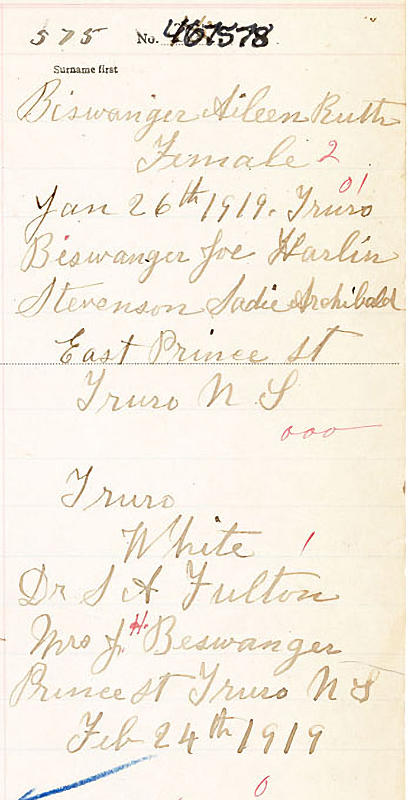 575 No. 467578
Surname first
Biswanger Aileen Ruth
Female 2
01
Jan 26th 1919. Truro
Biswanger Joe Harlin
Stevenson Sadie Archibald
East Prince St
Truro N S
000
Truro
White 1
Dr S A Fulton
Mrs J. H. Beswanger
Prince St Truro N S
Feb 24th 1919
0